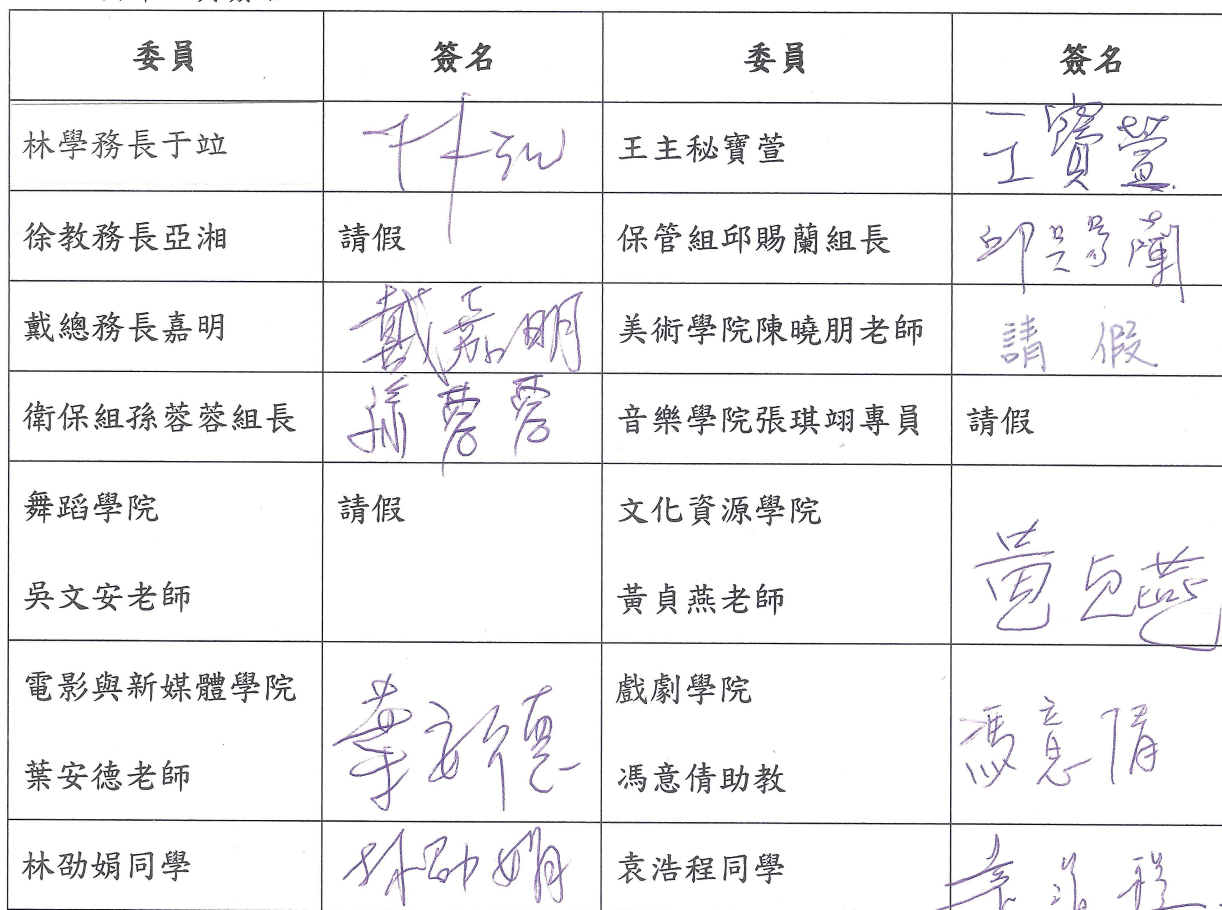 委員 簽名 委員 簽名
林學務長于竝 林于竝 王主秘寶萱 王寶萱
徐教務長亞湘 請假 保管組邱賜蘭組長 邱賜蘭
戴總務長嘉明 戴嘉明 美術學院陳曉朋老師 請假
衛保組孫蓉蓉組長 孫蓉蓉 音樂學院張琪翊專員 請假
舞蹈學院 請假 文化資源學院
吳文安老師 黃貞燕老師 黃貞燕
電影與新媒體學院 戲劇學院
葉安德老師 葉安德 馮意倩助教 馮意倩
林劭娟同學 林劭娟 袁浩程同學 袁浩程